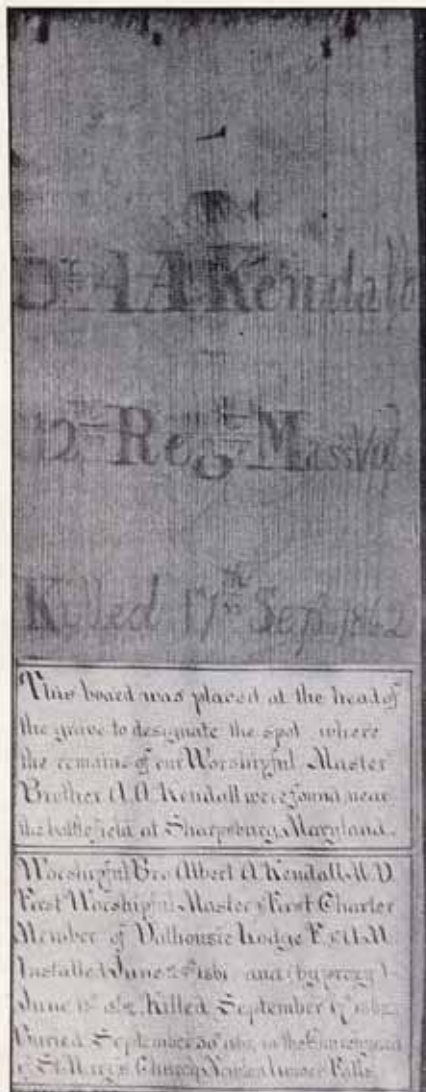 Dr. A A Kendall
12th Regt Mass Vol
Killed 17th Sept. 1862
This board was placed at the head of
the grave to designate the spot where
the remains of our Worshipful Master
Brother A. A. Kendall were found near
the battlefield at Sharpsburg, Maryland.
Worshipful Bro. Albert A Kendall M.D.
First Worshipful Master & First Charter
Member of Dalhousie Lodge F. & A. M.
Installed June 1861 and (by proxy)
June 1862. Killed September 17th 1862.
Buried September 30th 1862 in the
St. Mary's Church, Newton Lower Falls.